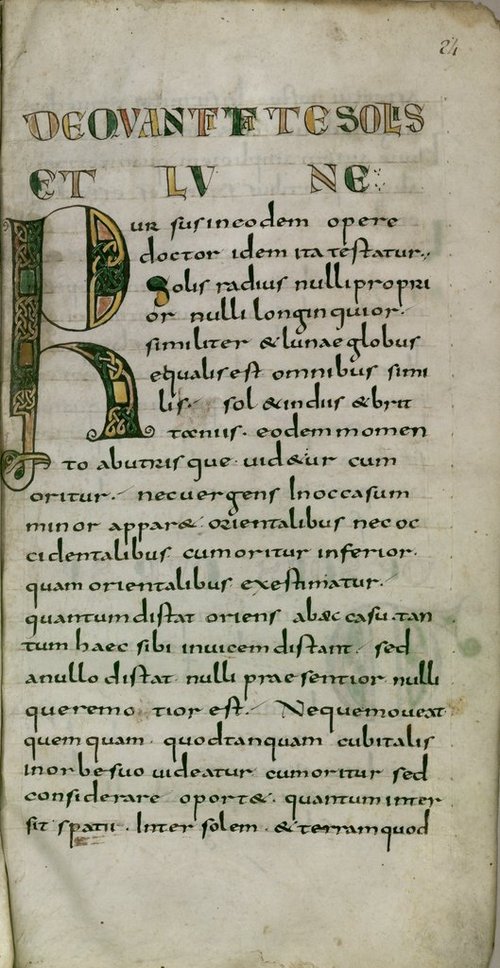 24
DE QVANTITATE SOLIS
ET LVNE
Rursus in eodem opere
doctor idem ita testatur.
Solis radius nulli propri
or nulli longinquior.
similiter & lunae globus
equalis est omnibus simi
lis. sol & indiis & brit
tanniis. eodem momen
to ab utrisque uid&ur cum
oritur. nec uergens In occasum
minor appar& orientalibus nec oc
cidentalibus cum oritur inferior.
quam orientalibus existimatur.
quantum distat oriens ab occasu. tan
tum haec sibi inuicem distant. sed
a nullo distat. nulli praesentior nulli
que remotior est. Neque moueat
quemquam. quod tanquam cubitalis
in orbe suo uideatur cum oritur sed
considerare oport&. quantum inter
sit spatii. Inter solem. & terram quod